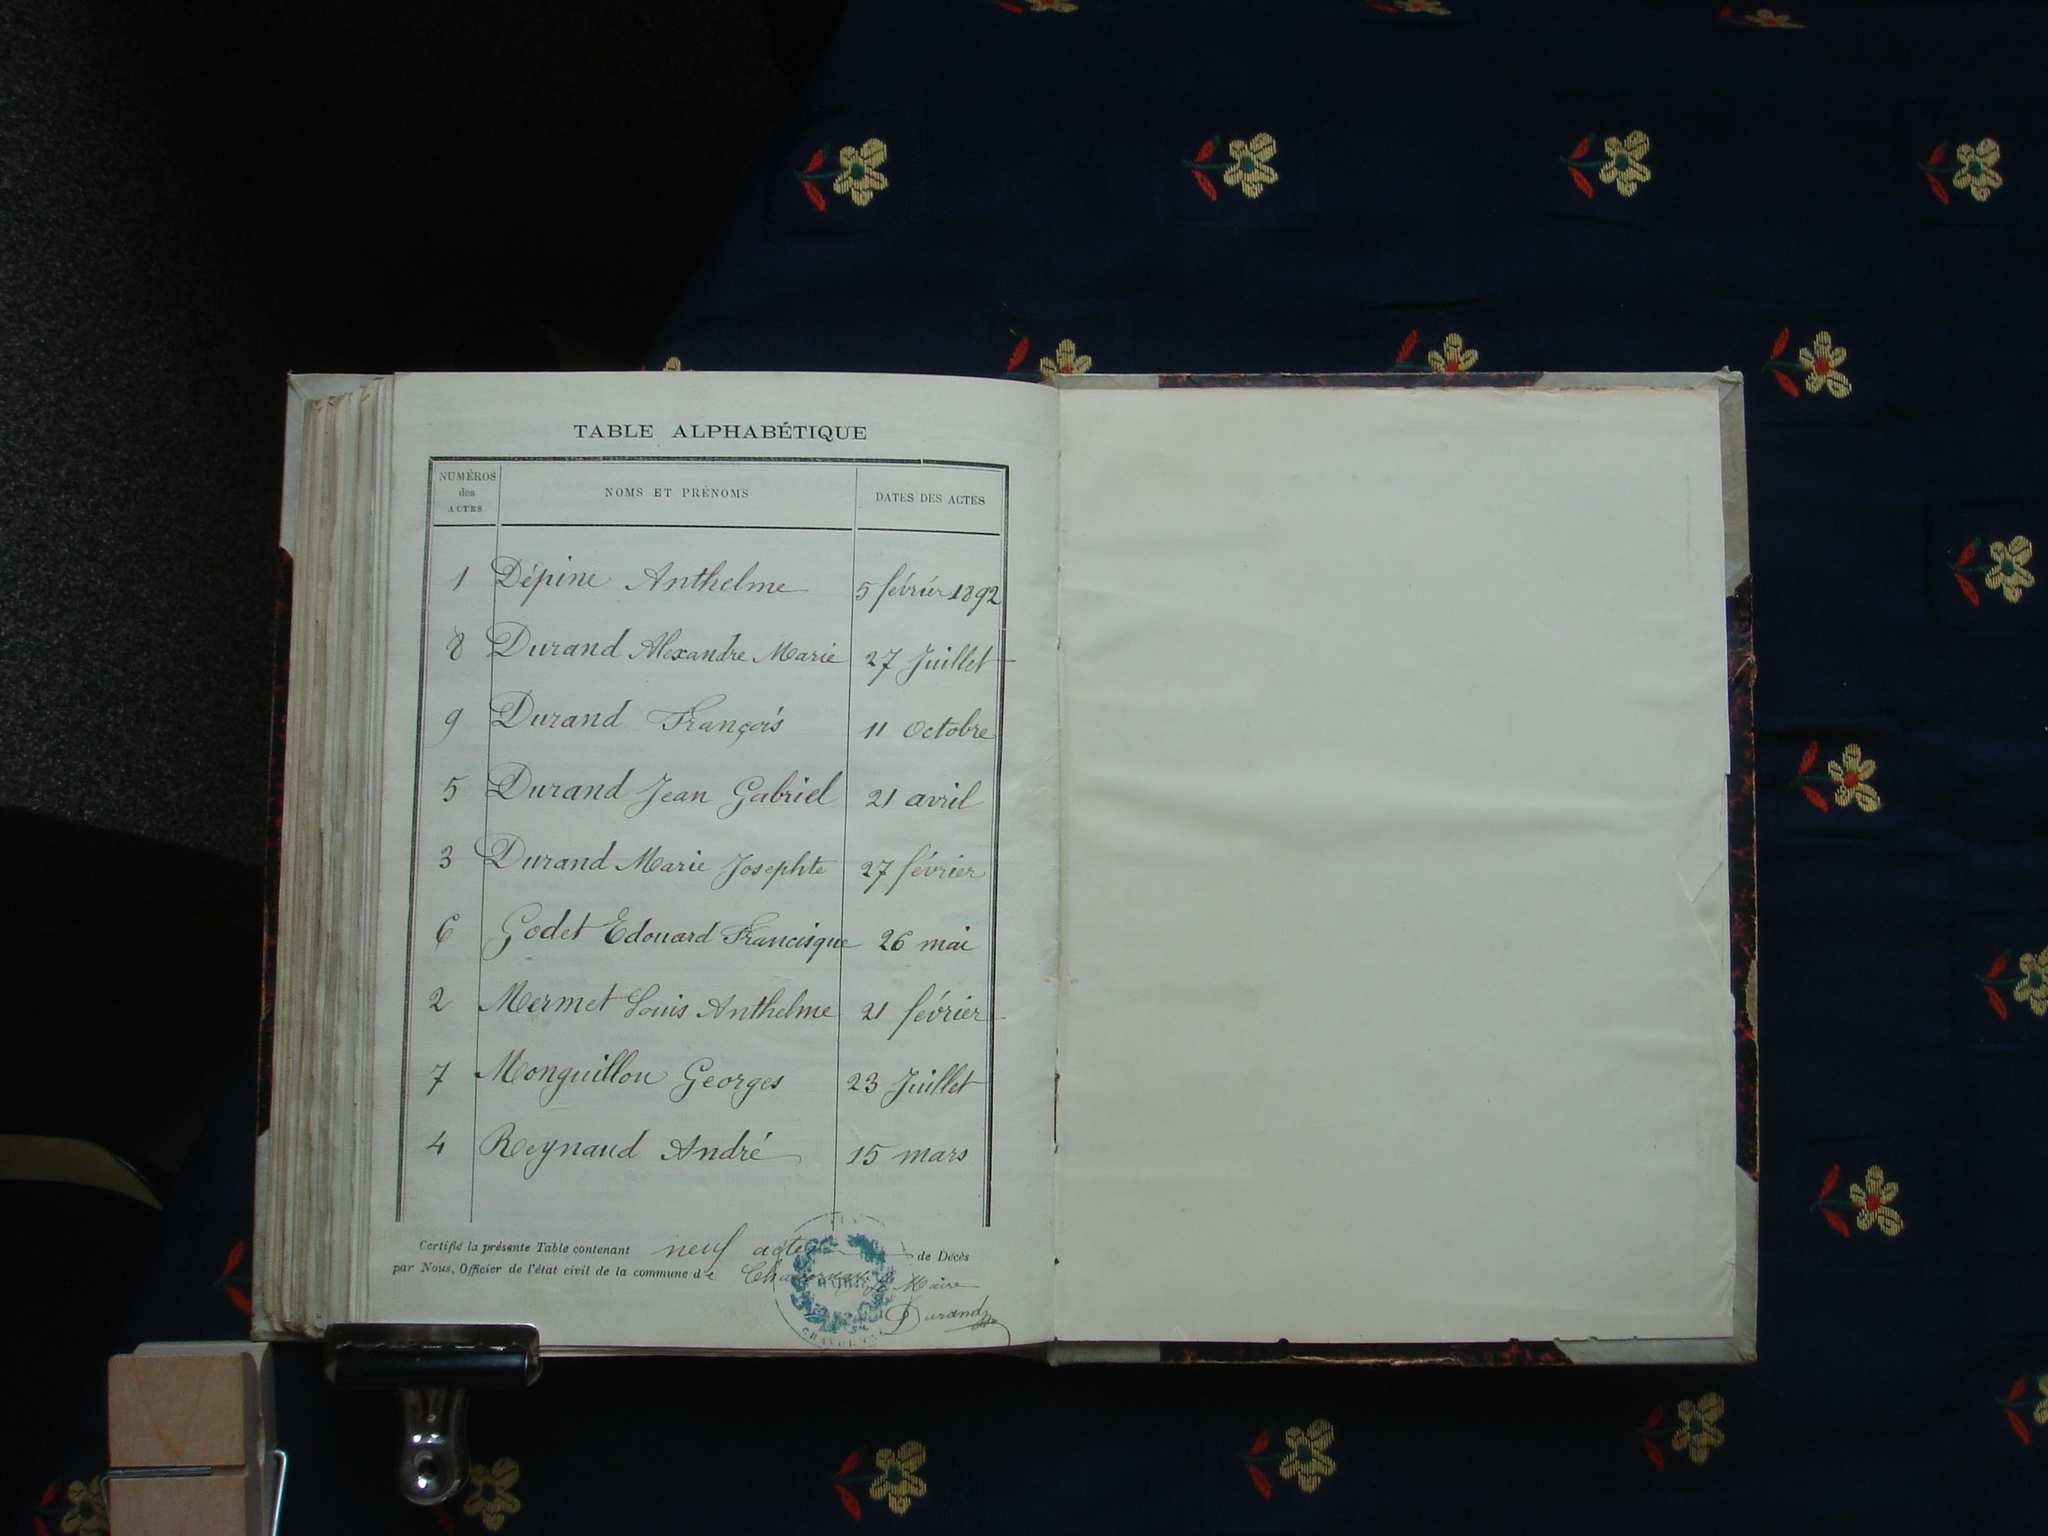 TABLE ALPHABÉTIQUE
NUMÉROS des ACTES NOMS ET PRÉNOMS DATES DES ACTES
1 Dépine Anthelme 5 février 1892
8 Durand Alexandre Marie 27 Juillet
9 Durand François 11 Octobre
5 Durand Jean Gabriel 21 avril
3 Durand Marie Josephte 27 février
6 Godet Edouard Francisque 26 mai
2 Mermet Louis Anthelme 21 février
7 Monguillon Georges 23 Juillet
4 Reynaud André 15 mars
Certifié la présente Table contenant neuf actes de Décès
par Nous, Officier de l'état civil de la commune de Chavornay
Le Maire
Durand